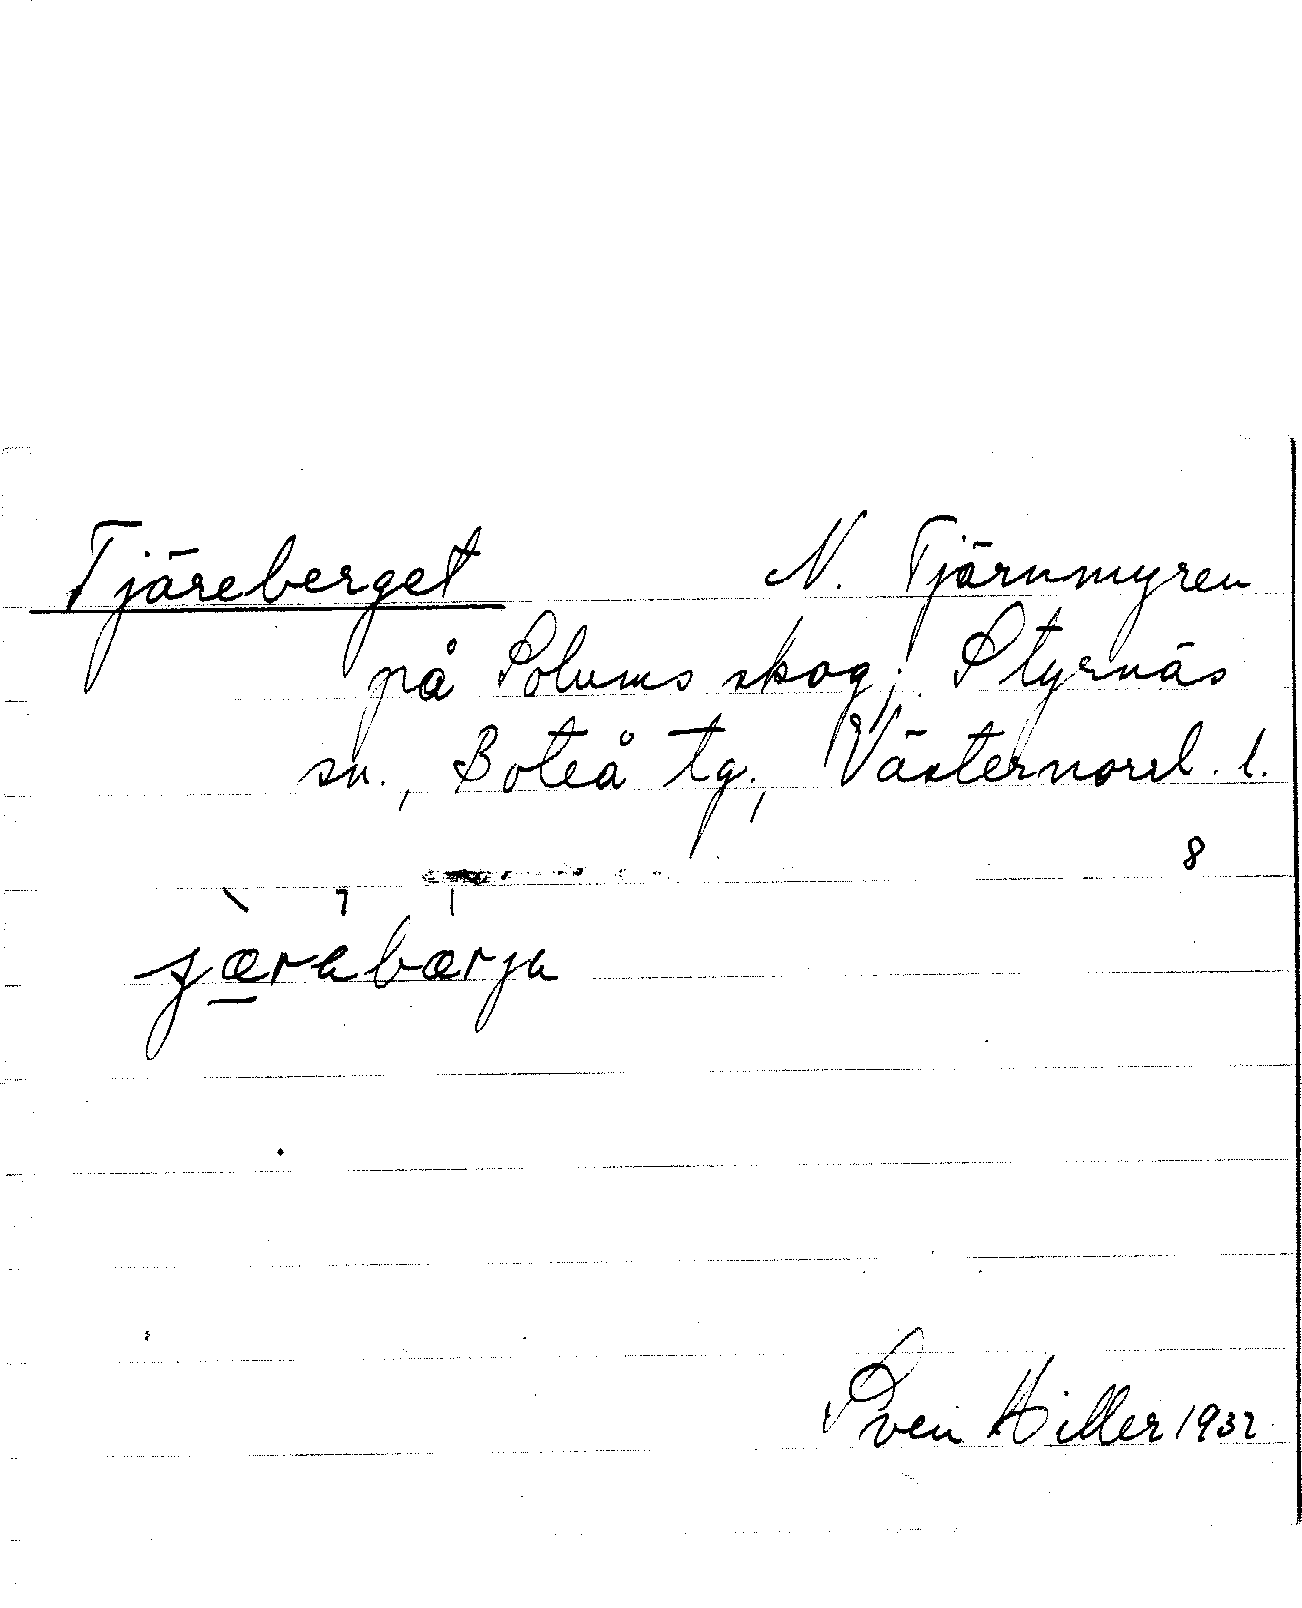 Tjäreberget N. Tjärnmyren
på Solums skog; Styrnäs
sn., Boteå tg., Västernorrl. l.
8
Sven Hiller 1932